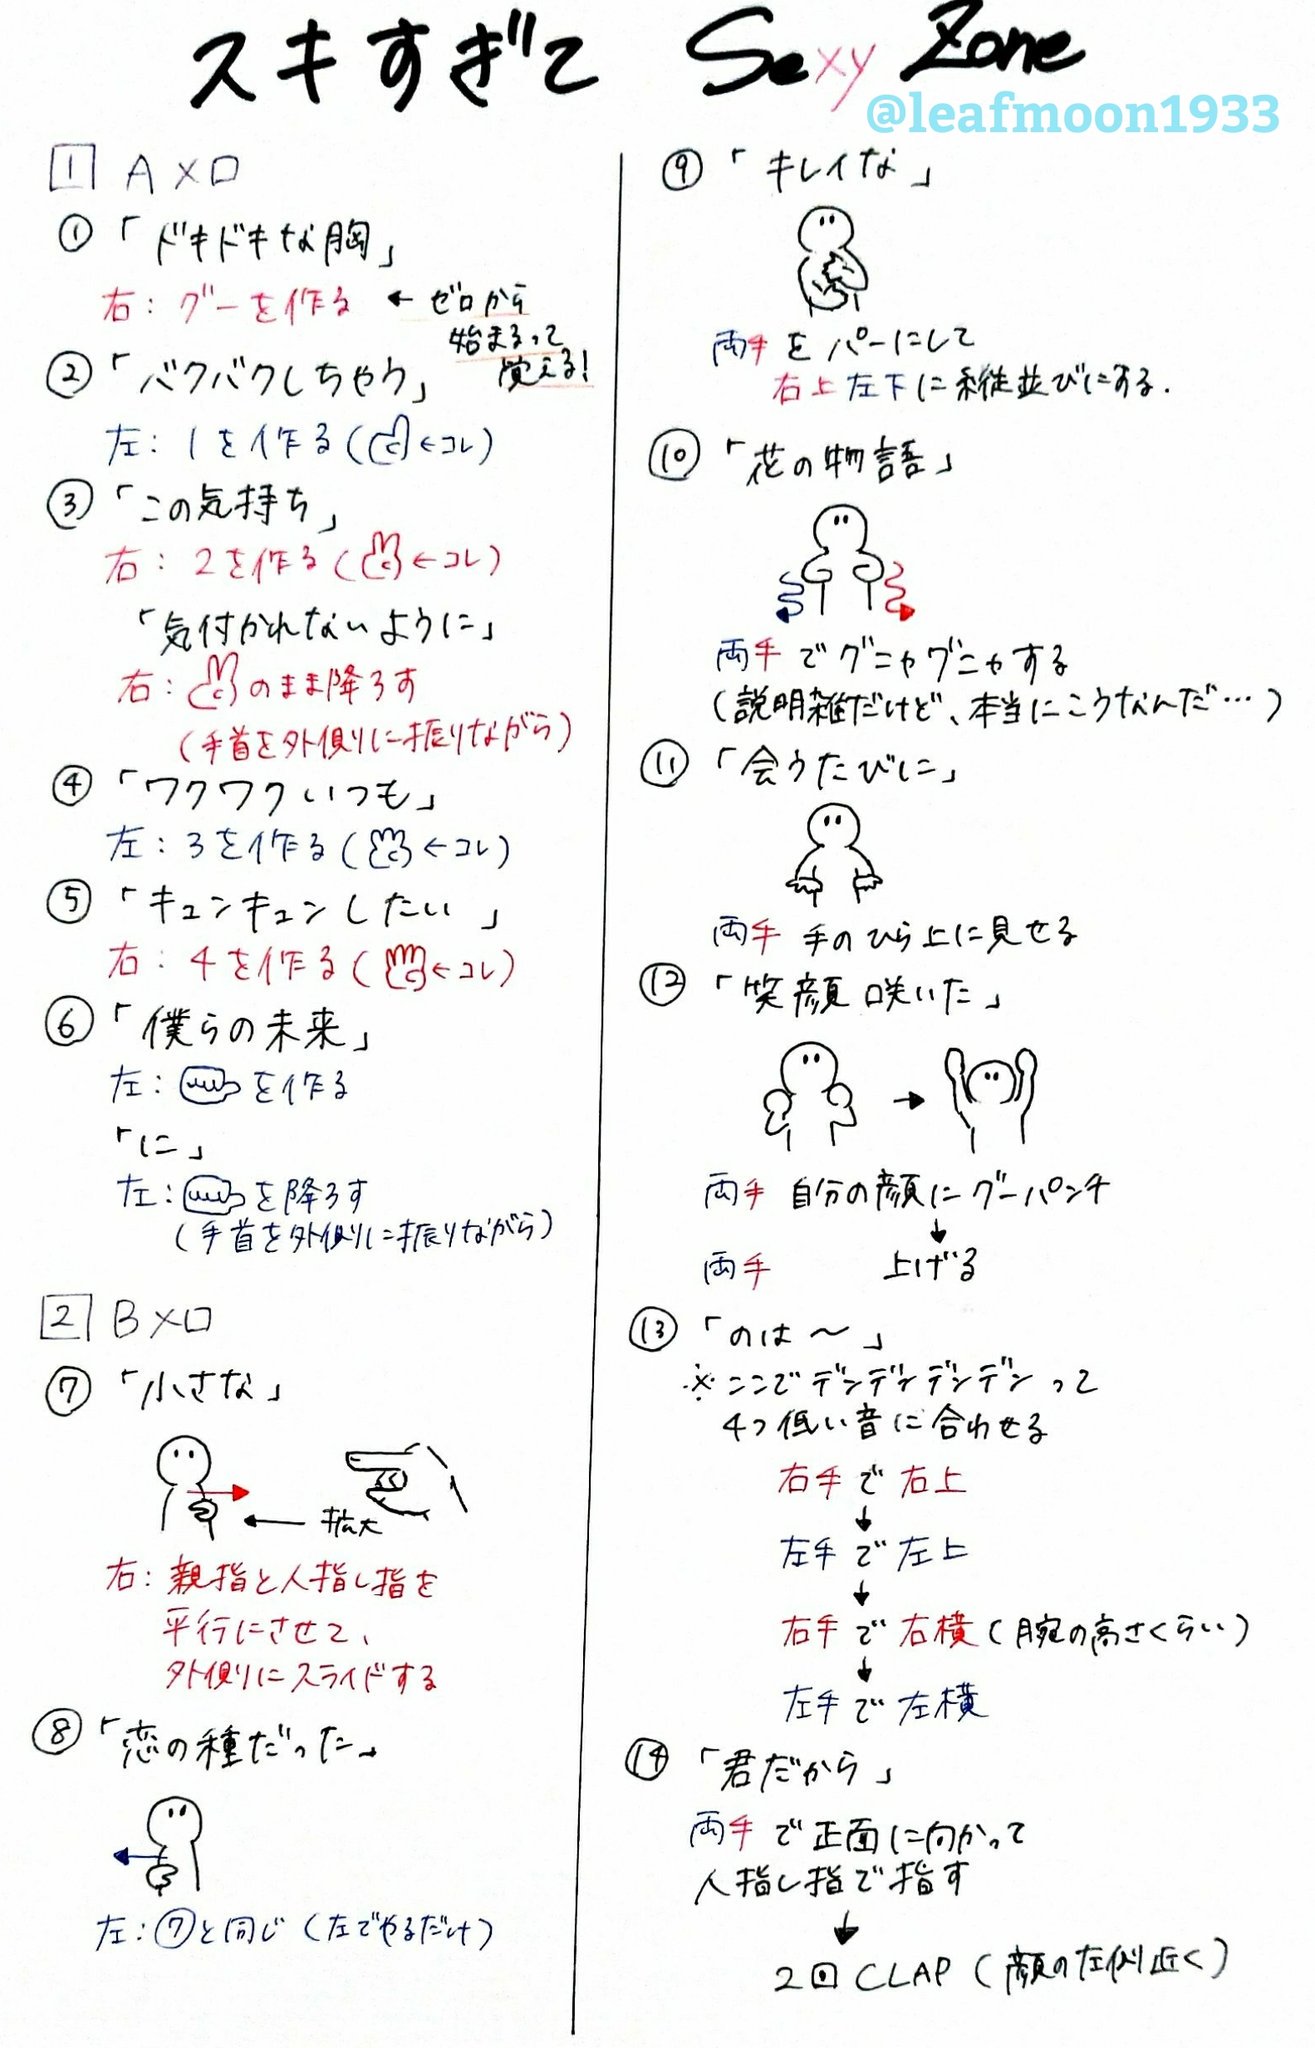 スキすぎて Sexy Zone
@leafmoon1933
1 Aメロ
①「ドキドキな胸」
右：グーを作る ← ゼロから
始まるって
覚える!
②「バクバクしちゃう」
左：1を作る(←コレ)
③「この気持ち」
右：2を作る(←コレ)
「気付かれないように」
右：のまま降ろす
(手首を外側に振りながら)
④「ワクワクいつも」
左：3を作る(←コレ)
⑤「キュンキュンしたい」
右：4を作る(←コレ)
⑥「僕らの未来」
左：を作る
「に」
左：を降ろす
(手首を外側に振りながら)
2 Bメロ
⑦「小さな」
← 拡大
右：親指と人指し指を
平行にさせて、
外側にスライドする
⑧「恋の種だった」
左：⑦と同じ(左でやるだけ)
⑨「キレイな」
両手をパーにして
右上左下に縦並びにする.
⑩「花の物語」
両手でグニャグニャする
(説明雑だけど、本当にこうなんだ…)
⑪「会うたびに」
両手 手のひら上に見せる
⑫「笑顔咲いた」
→
両手 自分の顔にグーパンチ
↓
両手 上げる
⑬「のは〜」
※ここでデンデンデンデンって
4つ低い音に合わせる
右手で右上
↓
左手で左上
↓
右手で右横(腕の高さくらい)
↓
左手で左横
⑭「君だから」
両手で正面に向かって
人指し指で指す
↓
2回CLAP(顔の左側近く)